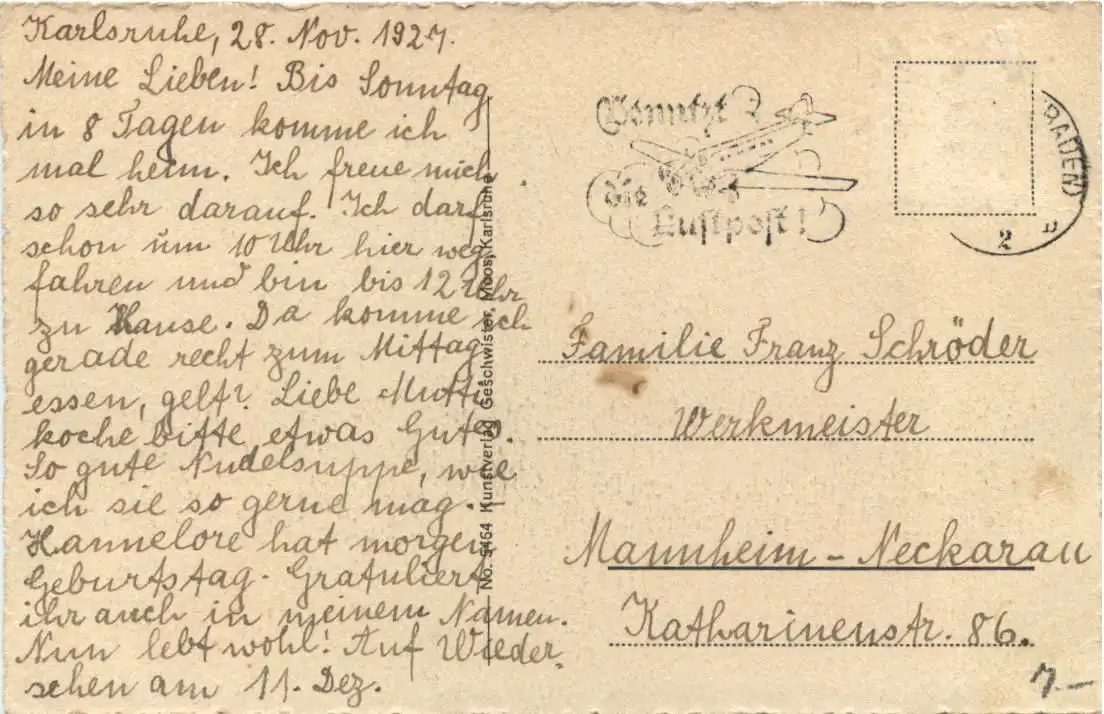 Karlsruhe, 28. Nov. 1927.
Meine Lieben! Bis Sonntag
in 8 Tagen komme ich
mal heim. Ich freue mich
so sehr darauf. Ich darf
schon um 10 Uhr hier weg
fahren und bin bis 12 Uhr
zu Hause. Da komme ich
gerade recht zum Mittag
essen, gelt? Liebe Mutti
koche bitte etwas Gutes.
So gute Nudelsuppe, wie
ich sie so gerne mag. –
Hannelore hat morgen
Geburtstag. Gratuliert
ihr auch in meinem Namen.
Nun lebt wohl! Auf Wieder-
sehen am 11. Dez.
No. 5464 Kunstverlag Geschwister Moos, Karlsruhe
Benutzt
die
Luftpost!
(BADEN)
2 b
Familie Franz Schröder
Werkmeister
Mannheim – Neckarau
Katharinenstr. 86.
7.–